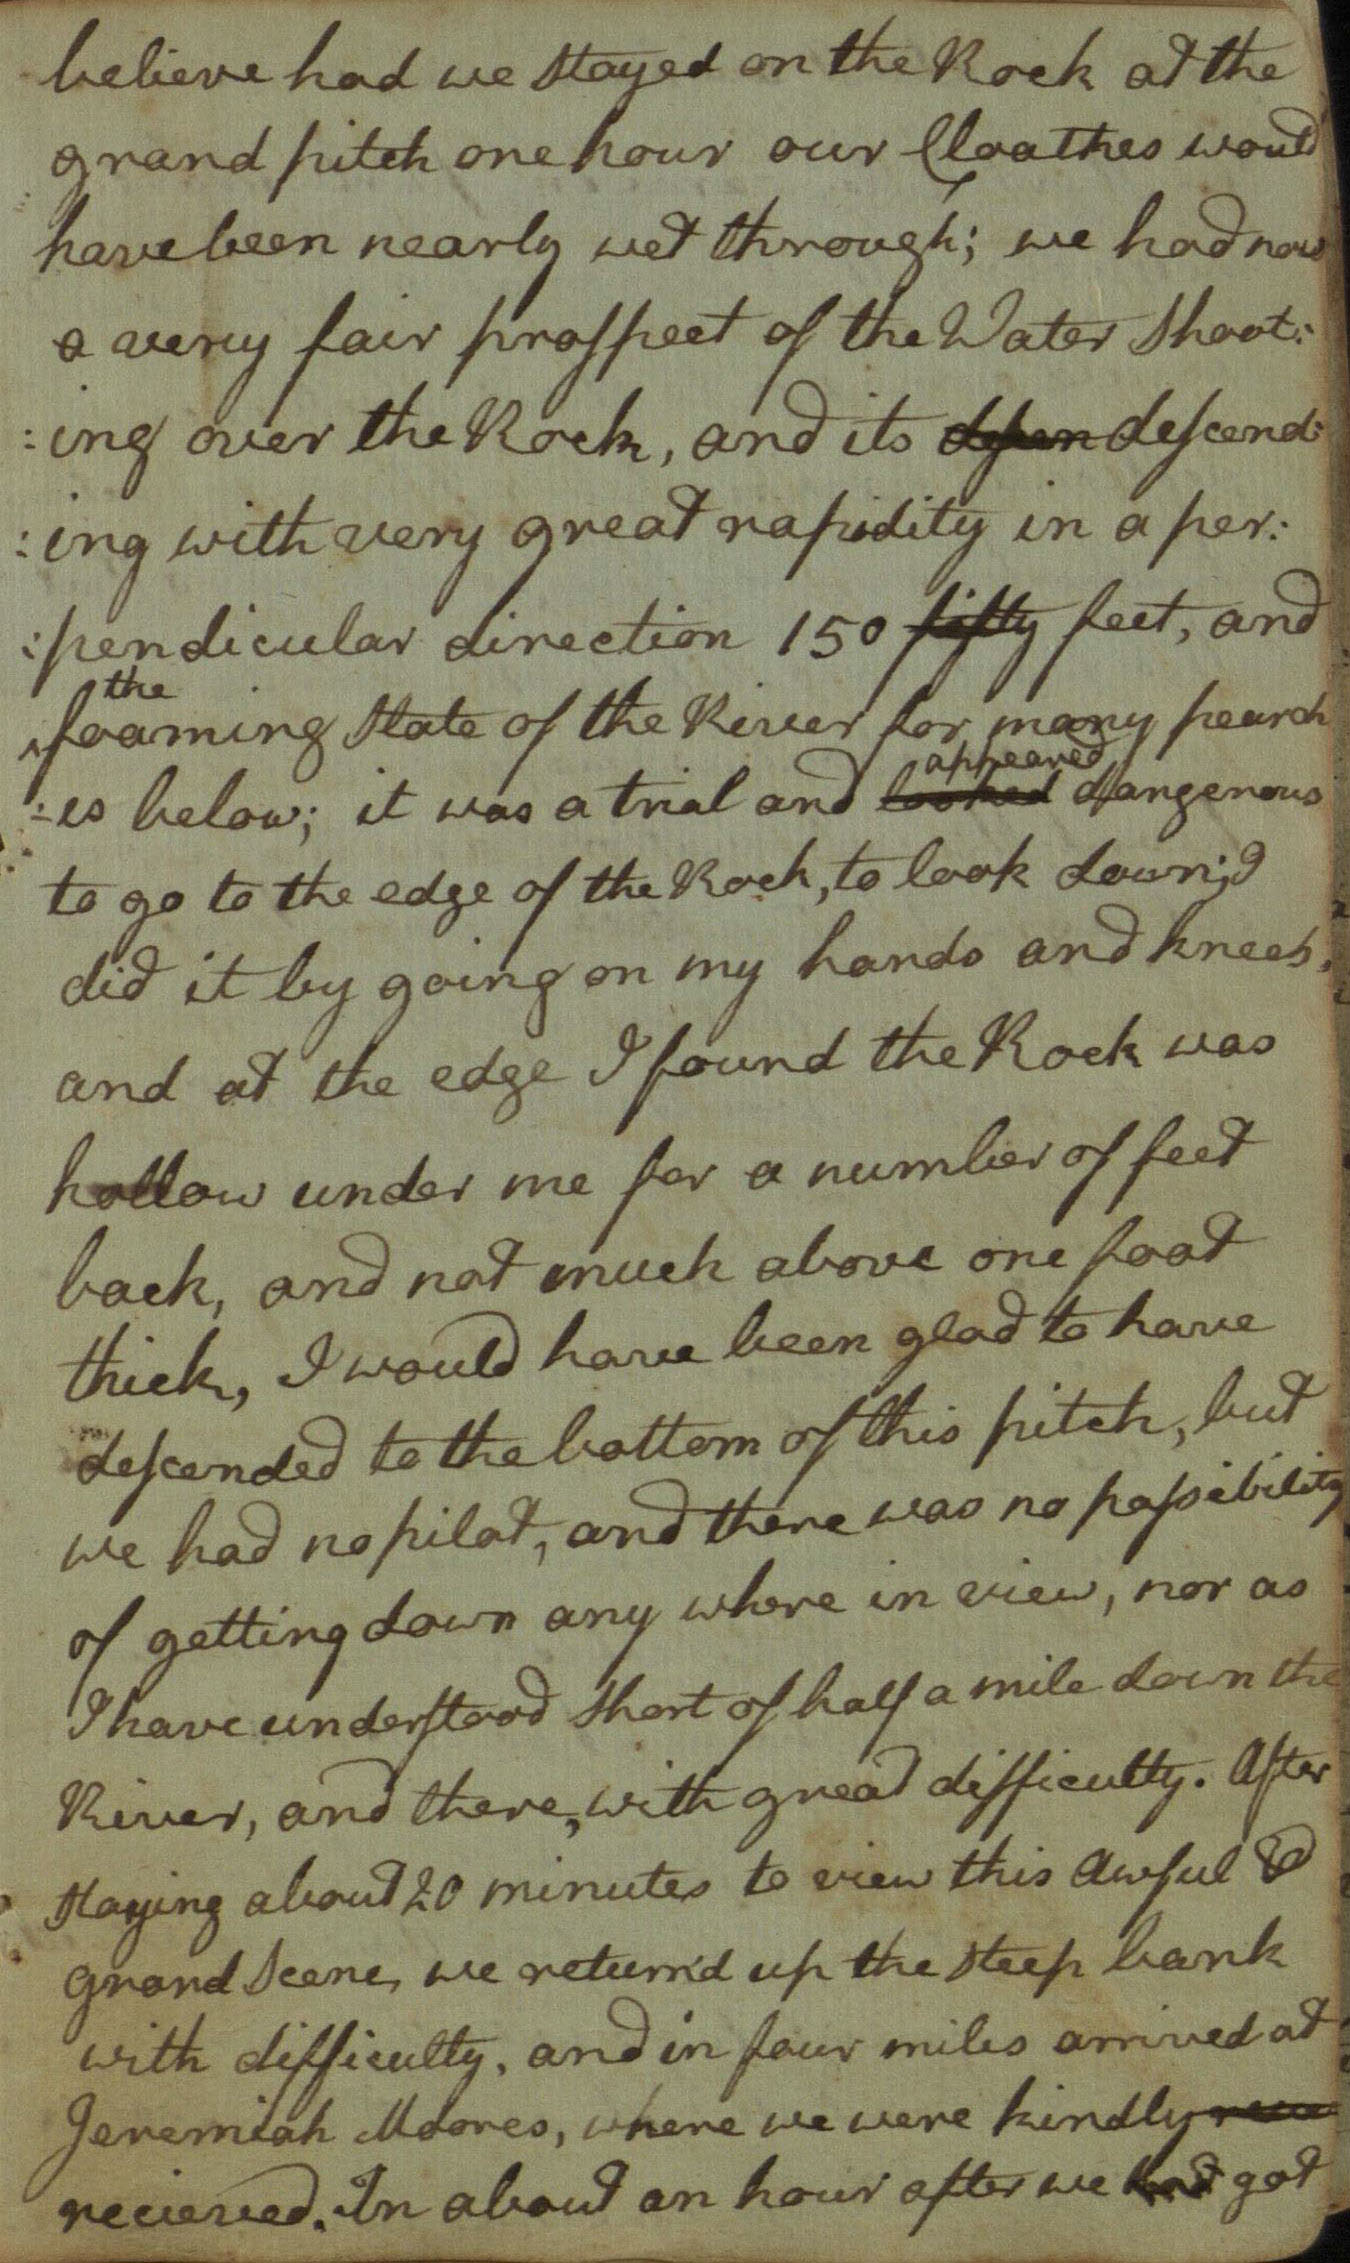 believe had we stayed on the Rock at the
grand pitch one hour our Cloathes would
have been nearly wet through; we had now
a very fair prospect of the Water shoot:
:ing over the Rock, and its descen descend:
:ing with very great rapidity in a per:
:pendicular direction 150 fifty feet, and
the
foaming state of the River for many pearch
appeared
:es below; it was a trial and looked dangerous
to go to the edge of the Rock, to look down; I
did it by going on my hands and knees,
and at the edge I found the Rock was
hollow under me for a number of feet
back, and not much above one foot
thick, I would have been glad to have
descended to the bottom of this pitch, but
we had no pilot, and there was no possibility
of getting down any where in view, nor as
I have understood short of half a mile down the
River, and there, with great difficulty. After
staying about 20 minutes to view this Awful &
grand Scene, we return'd up the steep bank
with difficulty, and in four miles arrived at
Jeremiah Moores, where we were kindly
recieved. In about an hour after we had got